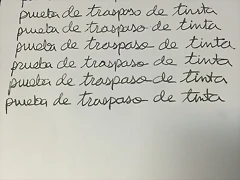 prueba de traspaso de tinta
prueba de traspaso de tinta
prueba de traspaso de tinta
prueba de traspaso de tinta
prueba de traspaso de tinta
prueba de traspaso de tinta